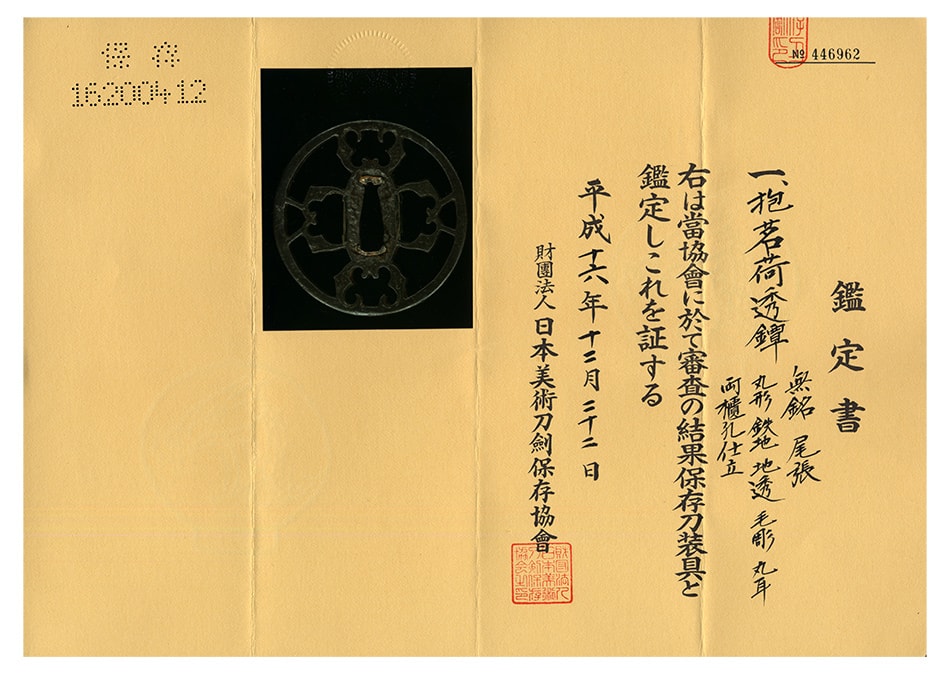 № 446962
鑑定書
一、抱茗荷透鐔
無銘 尾張
丸形 鉄地 地透 毛彫 丸耳
両櫃孔仕立
右は當協會に於て審査の結果保存刀装具と
鑑定しこれを証する
平成十六年十二月二十二日
財團法人 日本美術刀劍保存協會
保存
16200412